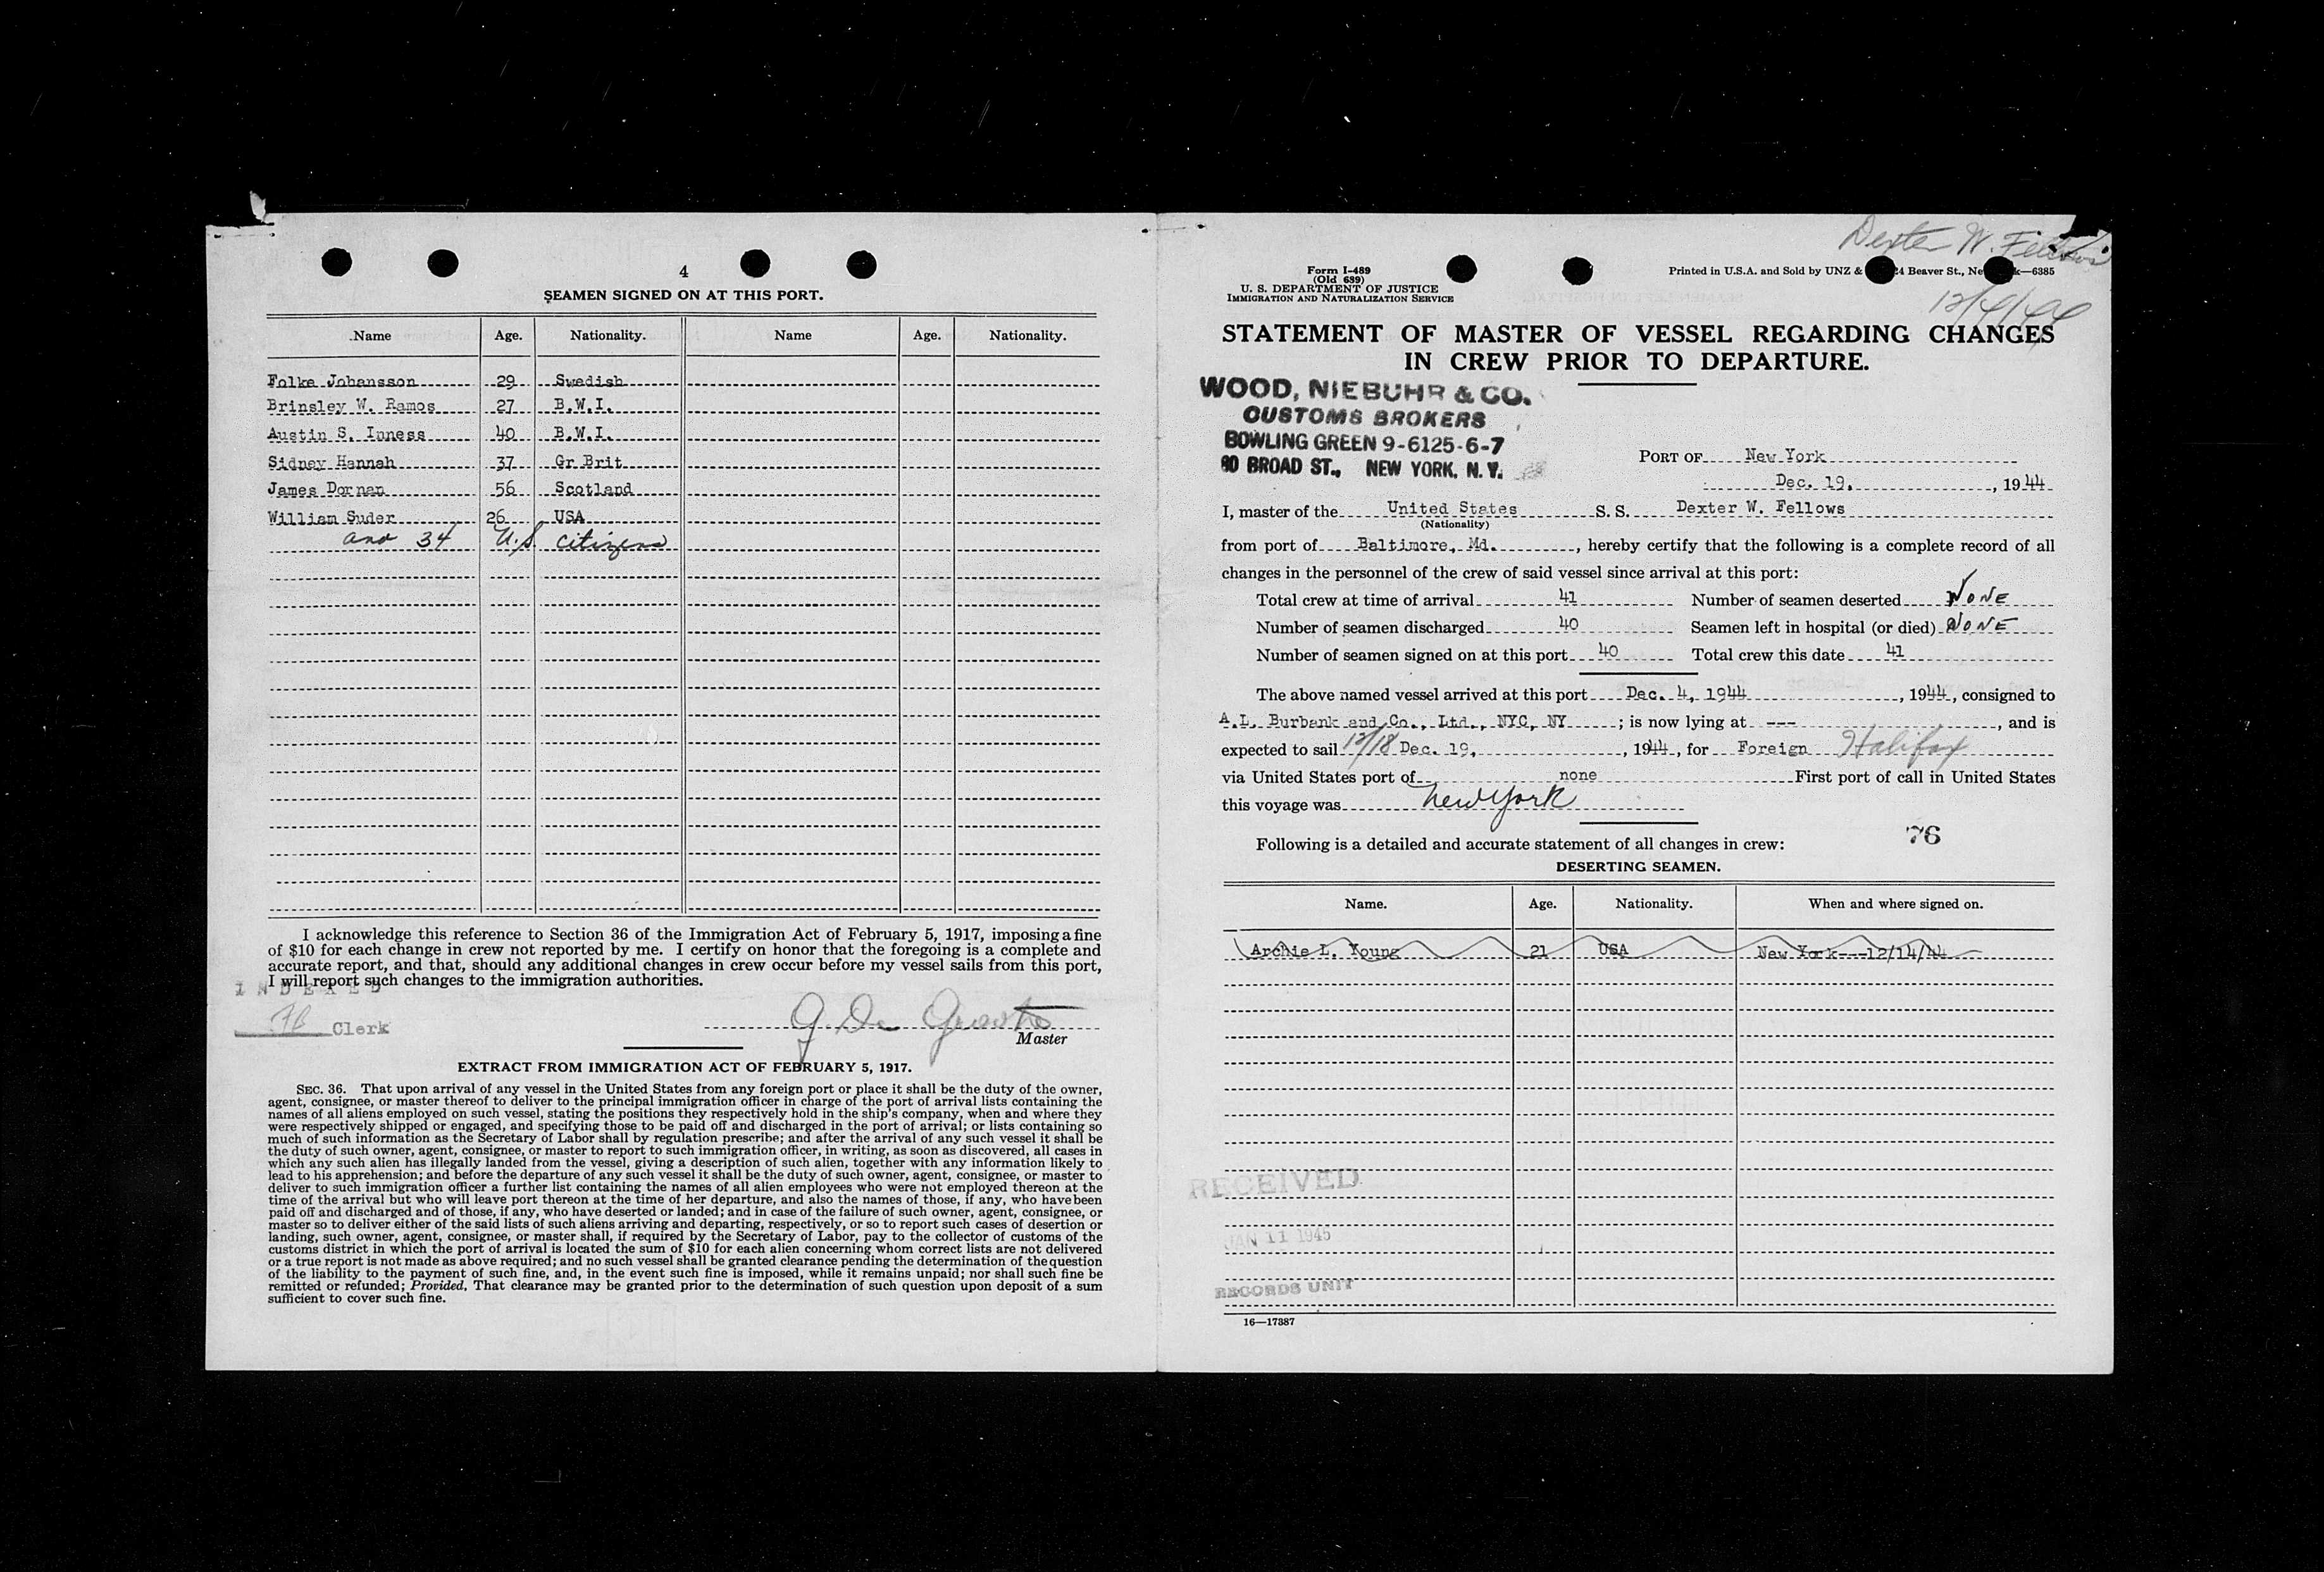 4
SEAMEN SIGNED ON AT THIS PORT.
Name Age. Nationality. Name Age. Nationality.
Folke Johansson 29 Swedish
Brinsley W. Ramos 27 B.W.I.
Austin S. Inness 40 B.W.I.
Sidney Hannah 37 Gr Brit
James Dornan 56 Scotland
William Suder 26 USA
and 34 U.S. citizens
I acknowledge this reference to Section 36 of the Immigration Act of February 5, 1917, imposing a fine
of $10 for each change in crew not reported by me. I certify on honor that the foregoing is a complete and
accurate report, and that, should any additional changes in crew occur before my vessel sails from this port,
I will report such changes to the immigration authorities.
INDEXED
Clerk
Master
EXTRACT FROM IMMIGRATION ACT OF FEBRUARY 5, 1917.
SEC. 36. That upon arrival of any vessel in the United States from any foreign port or place it shall be the duty of the owner,
agent, consignee, or master thereof to deliver to the principal immigration officer in charge of the port of arrival lists containing the
names of all aliens employed on such vessel, stating the positions they respectively hold in the ship's company, when and where they
were respectively shipped or engaged, and specifying those to be paid off and discharged in the port of arrival; or lists containing so
much of such information as the Secretary of Labor shall by regulation prescribe; and after the arrival of any such vessel it shall be
the duty of such owner, agent, consignee, or master to report to such immigration officer, in writing, as soon as discovered, all cases in
which any such alien has illegally landed from the vessel, giving a description of such alien, together with any information likely to
lead to his apprehension; and before the departure of any such vessel it shall be the duty of such owner, agent, consignee, or master to
deliver to such immigration officer a further list containing the names of all alien employees who were not employed thereon at the
time of the arrival but who will leave port thereon at the time of her departure, and also the names of those, if any, who have been
paid off and discharged and of those, if any, who have deserted or landed; and in case of the failure of such owner, agent, consignee, or
master so to deliver either of the said lists of such aliens arriving and departing, respectively, or so to report such cases of desertion or
landing, such owner, agent, consignee, or master shall, if required by the Secretary of Labor, pay to the collector of customs of the
customs district in which the port of arrival is located the sum of $10 for each alien concerning whom correct lists are not delivered
or a true report is not made as above required; and no such vessel shall be granted clearance pending the determination of the question
of the liability to the payment of such fine, and, in the event such fine is imposed, while it remains unpaid; nor shall such fine be
remitted or refunded; Provided, That clearance may be granted prior to the determination of such question upon deposit of a sum
sufficient to cover such fine.
Dexter W. Fellows
12/4/44
Form I-489
(Old 689)
U. S. DEPARTMENT OF JUSTICE
IMMIGRATION AND NATURALIZATION SERVICE
Printed in U.S.A. and Sold by UNZ & 24 Beaver St., Ne k—6385
STATEMENT OF MASTER OF VESSEL REGARDING CHANGES
IN CREW PRIOR TO DEPARTURE.
WOOD, NIEBUHR & CO.
CUSTOMS BROKERS
BOWLING GREEN 9-6125-6-7
80 BROAD ST., NEW YORK, N. Y.
PORT OF New York
Dec. 19, , 1944
I, master of the United States S. S. Dexter W. Fellows
(Nationality)
from port of Baltimore, Md. , hereby certify that the following is a complete record of all
changes in the personnel of the crew of said vessel since arrival at this port:
Total crew at time of arrival 41 Number of seamen deserted NONE
Number of seamen discharged 40 Seamen left in hospital (or died) NONE
Number of seamen signed on at this port 40 Total crew this date 41
The above named vessel arrived at this port Dec. 4, 1944 , 1944, consigned to
A.L. Burbank and Co., Ltd., NYC, NY ; is now lying at --- , and is
expected to sail 12/18 Dec. 19, , 1944, for Foreign Halifax
via United States port of none First port of call in United States
this voyage was New York
76
Following is a detailed and accurate statement of all changes in crew:
DESERTING SEAMEN.
Name. Age. Nationality. When and where signed on.
Archie L. Young 21 USA New York---12/14/44
RECEIVED
JAN 11 1945
RECORDS UNIT
16—17387